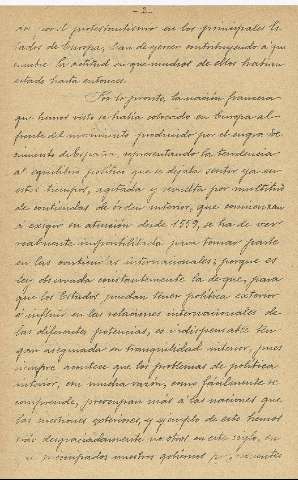 - 2 -
do por el protestantismo en los principales Es-
tados de Europa, han de ejercer contribuyendo á que
cambie la actitud en que muchos de ellos habían
estado hasta entonces.
Por lo pronto, la nación francesa
que hemos visto se había colocado en Europa al
frente del movimiento producido por el engran-
decimiento de España, representando la tendencia
al equilibrio político que se dejaba sentir ya en
estos tiempos, agitada y revuelta por multitud
de contiendas de orden interior, que comienzan
á exigir su atención desde 1559, se ha de ver
realmente imposibilitada para tomar parte
en las contiendas internacionales; porque es
ley observada constantemente la de que, para
que los Estados puedan tener política exterior
é influir en las relaciones internacionales de
las diferentes potencias, es indispensable ten-
gan asegurada su tranquilidad interior, pues
siempre acontece que los problemas de política
interior, con mucha razón, como fácilmente se
comprende, preocupan más á las naciones que
las cuestiones exteriores, y ejemplo de esto hemos
sido desgraciadamente nosotros en este siglo, en
que preocupados nuestros gobiernos